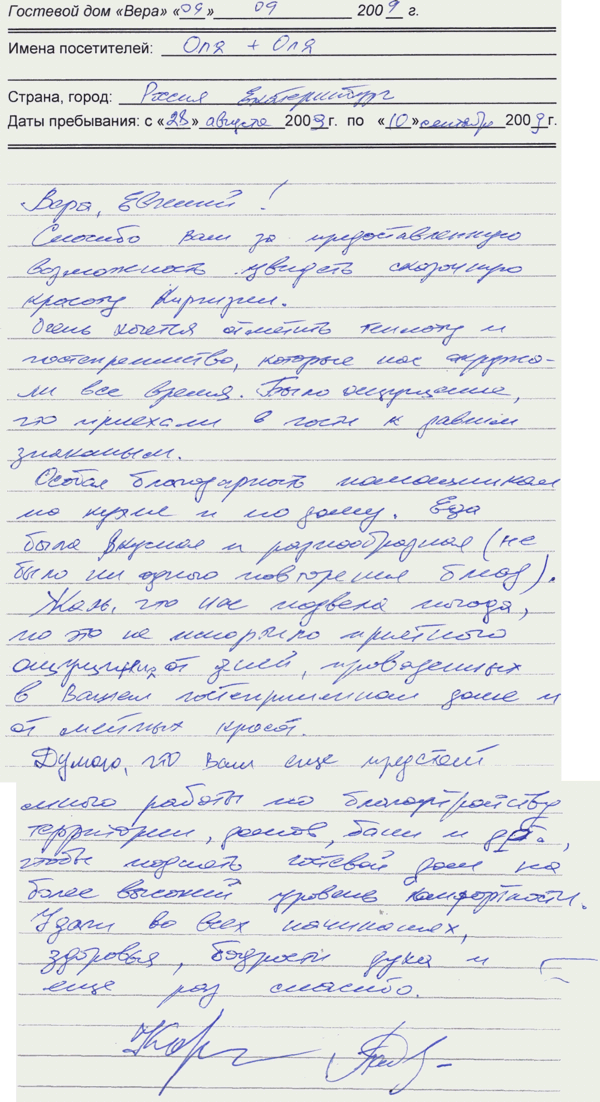 Гостевой дом «Вера» «09» 09 2009 г.
Имена посетителей: Оля + Оля
Страна, город: Россия Екатеринбург
Даты пребывания: с «28» августа 2009 г. по «10» сентября 2009 г.
Вера, Евгений!
Спасибо Вам за предоставленную
возможность увидеть сказочную
красоту Киргизии.
Очень хочется отметить теплоту и
гостеприимство, которые нас окружа-
ли все время. Было ощущение,
что приехали в гости к давним
знакомым.
Особая благодарность помощникам
по кухне и по дому. Еда
была вкусная и разнообразная (не
было ни одного повторения блюд).
Жаль, что нас подвела погода,
но это не испортило приятного
ощущения от дней, проведенных
в Вашем гостеприимном доме и
от местных красот.
Думаю, что Вам еще предстоит
много работы по благоустройству
территории, домов, бани и др.,
чтобы поднять гостевой дом на
более высокий уровень комфортности.
Удачи во всех начинаниях,
здоровья, бодрости духа и
еще раз спасибо.